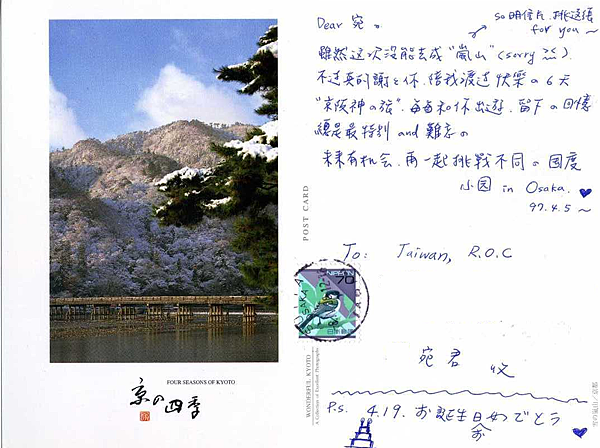 FOUR SEASONS OF KYOTO
京の四季
POST CARD
WONDERFUL KYOTO
A Collection of Excellent Photographs
雪の嵐山／京都
so 明信片,挑這張
for you~
Dear 宛。
雖然這次沒能去成"嵐山"(sorry)
不过真的謝謝你,陪我渡过快樂の6天
"京阪神の旅",每每和你出遊,留下の回憶
總是最特別 and 難忘の
未來有机会,再一起挑戰不同の國度
小园 in Osaka.
97.4.5~
To: Taiwan, R.O.C
NIPPON
70
日本郵便
OSAKA
宛君 收
P.S. 4.19. お誕生日おめでとう